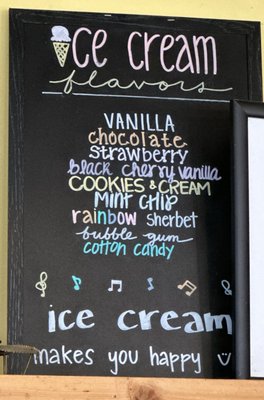 ice cream
flavors
VANILLA
chocolate
strawberry
black cherry vanilla
COOKIES & CREAM
MINT CHIP
rainbow sherbet
bubble gum
cotton candy
ice cream
makes you happy